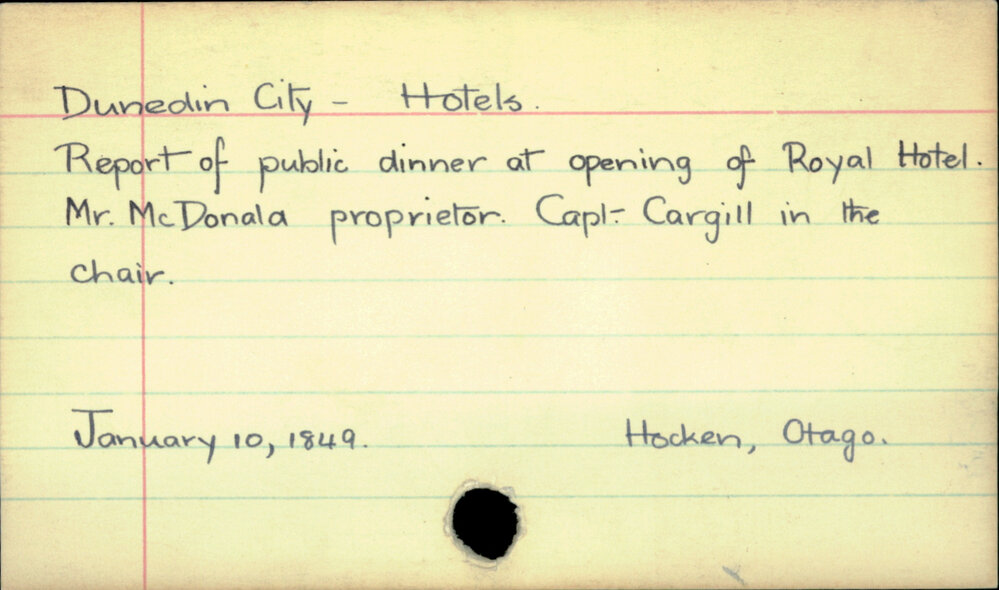 Dunedin City - Hotels.
Report of public dinner at opening of Royal Hotel.
Mr. McDonald proprietor. Capt. Cargill in the
chair.
January 10, 1849. Hocken, Otago.